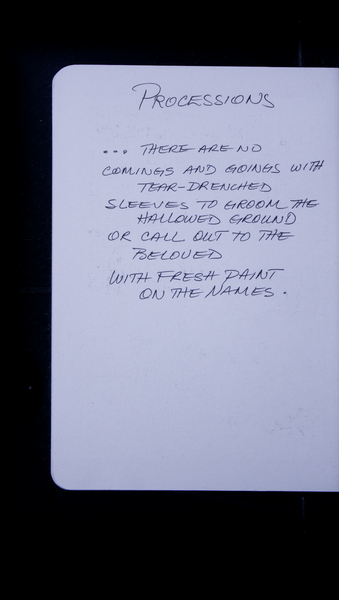 PROCESSIONS
... THERE ARE NO
COMINGS AND GOINGS WITH
TEAR-DRENCHED
SLEEVES TO GROOM THE
HALLOWED GROUND
OR CALL OUT TO THE
BELOVED
WITH FRESH PAINT
ON THE NAMES.